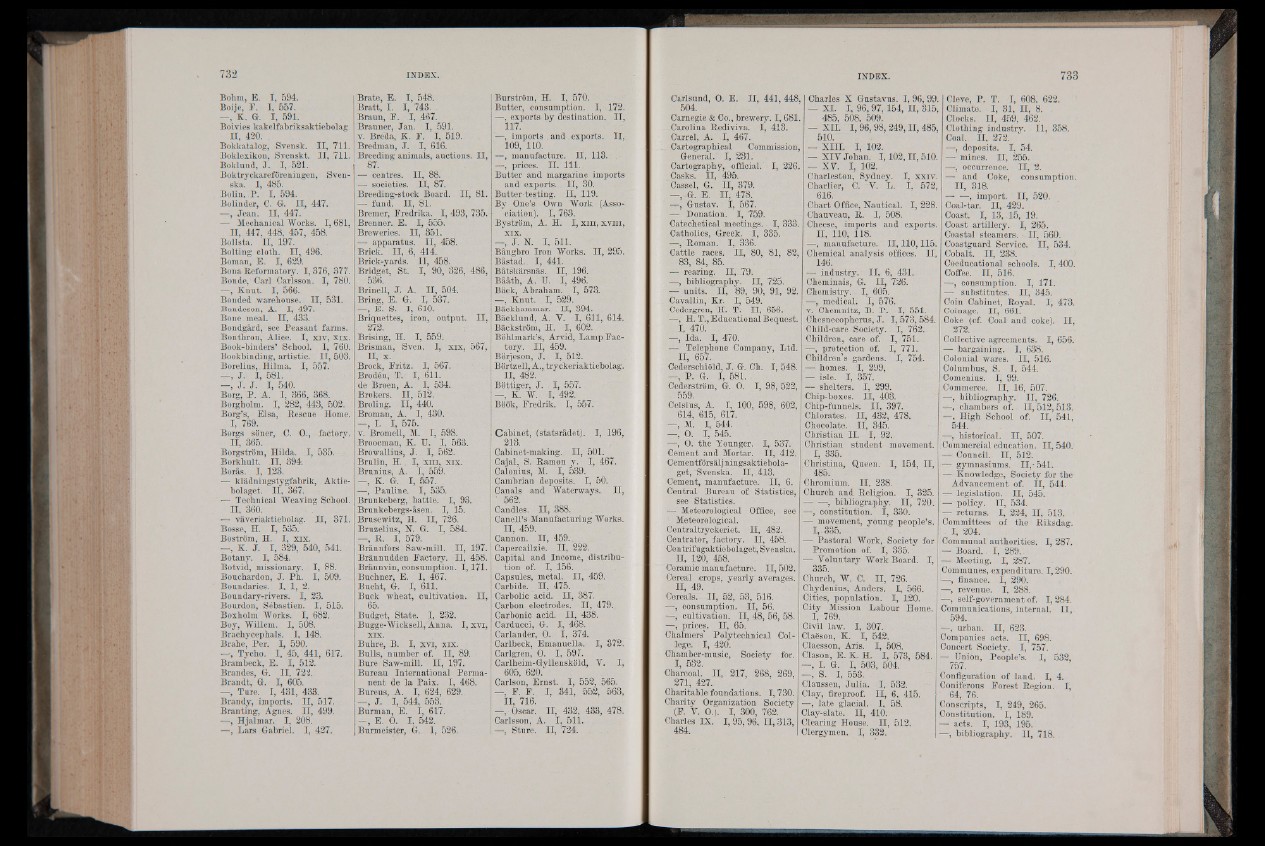 732
INDEX.
Bohm, E. I, 594.
Boije, F. I, 557.
—, K. G. I, 591.
Boivies kakelfabriksaktiebolag.
II, 420.
Bokkatalog, Svensk. II, 711.
Boklexikon, Svenskt. II, 711.
Boklund, J. I, 521.
Boktryckareföreningen, Sven-
ska. I, 485.
Bolin, P. I, 594.
Bolinder, C. G. II, 447.
—, Jean. II, 447.
— Mechanical Works. I, 681,
II, 447, 448, 457, 458.
Bollsta. II, 197.
Bolting cloth. II, 496.
Boman, E. I, 629.
Bona Reformatory. I, 376, 377.
Bonde, Carl Carlsson. I, 780.
—, Knut. I, 566.
Bonded warehouse. II, 531.
Bondeson, A. I, 497.
Bone meal. II, 433.
Bondgård, see Peasant farms.
Bonthron, Alice. I, XIV, XIX.
Book-binders' School. I, 760.
Bookbinding, artistic. II, 503.
Borelius, Hilma. I, 557.
—, J. I, 581.
—, J. J. I, 540.
Borg, P. A. I, 366, 368.
Borgholm. I, 282, 443, 502.
Borg's, Elsa, Rescue Home.
I, 769.
Borgs söner, C. O., factory.
II, 365.
Borgström, Hilda. I, 535.
Borkhult. II, 394.
Borås. I, 123.
— klädningstygfabrik, Aktie-
bolaget. II, 367.
— Technical Weaving School.
II, 360.
— väveriaktiebolag. II, 371.
Bosse, H. I, 535.
Boström, H. I, XIX.
—, K. J. I, 329, 540, 541.
Botany. I, 584.
Botvid, missionary. I, 88.
Bouchardon, J. Ph. I, 509.
Boundaries. I, 1, 2.
Boundary-rivers. I, 23.
Bourdon, Sébastien. I, 515.
Boxholm Works. I, 682.
Boy, Willem. I, 508.
Brachycephals. I, 148.
Brahe, Per. I, 590.
—, Tycho. I, 45, 441, 617.
Brambeck, E. I, 512.
Brandes, G. II, 722.
Brandt, G. I, 605.
—, Ture. I, 431, 433.
Brandy, imports. II, 517.
Branting, Agnes. II, 499.
—, Hjalmar. I, 208.
—, Lars Gabriel. I, 427.
Brate, E. I, 548.
Bratt, I. I, 743.
Braun, F. I, 467.
Brauner, Jan. I, 591.
v. Breda, K. F. I, 519.
Bredman, J. I, 616.
Breeding animals, auctions. II,
87.
— centres. II, 88.
— societies. II, 87.
Breeding-stock Board. II, 81.
— fund. II, 81.
Bremer, Fredrika. I, 493, 735.
Brenner. E. I, 555.
Breweries. II, 351.
— apparatus. II, 458.
Brick. II, 6, 414.
Brick-yards. II, 458.
Bridget, St. I, 90, 326, 486,
536.
Brinell, J. A. II, 504.
Bring, E. G. I, 537.
—, E. S. I, 610.
Briquettes, iron, output. II,
272.
Brising, H. I, 559.
Brisman, Sven. I, XIX, 567,
II, X.
Brock, Fritz. I, 567.
Brodén, T. I, 611.
de Broen, A. I, 534.
Brokers. II, 512.
Broling. II, 440.
Broman, A. I, 430.
—, I. I, 575.
v. Bromell, M. I, 598.
Brooman, K. U. I, 563.
Browallius, J. I, 562.
Brulin, H. I, XIII, XIX.
Brunius, A. I, 559.
—, K. G. I, 557.
—, Pauline. I, 535.
Brunkeberg, battle. I, 93.
Brunkebergs-åsen. I, 15.
Brusewitz, H. II, 726.
Bruzelius, N. G. I, 584.
—, R. I, 579.
Brännfors Saw-mill. II, 197.
Brännudden Factory. II, 458.
Brännvin, consumption. I, 171.
Buchner, E. I, 467.
Bucht, G. I, 611.
Buck wheat, cultivation. II,
65.
Budget, State. I, 232.
Bugge-Wicksell, Anna. I, XVI,
XIX.
Buhre, B. I, XVI, XIX.
Bulls, number of. II, 89.
Bure Saw-mill. II, 197.
Bureau International Perma-
nent de la Paix. I, 468.
Bureus, A. I, 624, 629.
—, J. I, 544, 553.
Burman, E. I, 617.
—, E. O. I, 542.
Burmeister, G. I, 526.
Burström, H. I, 570.
Butter, consumption. I, 172.
—, exports by destination. II,
117.
—, imports and exports. II,
109, 110.
—, manufacture. II, 113.
—, prices. II, 111.
Butter and margarine imports
and exports. II, 30.
Butter-testing. II, 119.
By One's Own Work (Asso-
ciation). I, 763.
Byström, A. H. I, XIII, XVIII,
XIX.
—, J. N. I, 511.
Bångbro Iron Works. II, 295.
Båstad. I, 441.
Båtskärsnäs. II, 196.
Bååth, A. U. I, 496.
Bäck, Abraham. I, 573.
—, Knut. I, 529.
Bäckhammar. II, 394.
Bäcklund, A. V. I, 611, 614.
Bäckström, H. I, 602.
Böhlmark's, Arvid, Lamp Fac-
tory. II, 459.
Börjeson, J. I, 512.
Börtzell, A., tryckeriaktiebolag.
II, 482.
Böttiger, J. I, 557.
—, K. W. I, 492.
Böök, Fredrik. I, 557.
Cabinet, (statsrådet). I, 196,
213.
Cabinet-making. II, 501.
Cajal, S. Ramon y. I, 467.
Calonius, M. I, 539.
Cambrian deposits. I, 50.
Canals and Waterways. II,
562.
Candles. II, 388.
Canell's Manufacturing Works.
II, 459.
Cannon. II, 459.
Capercailzie. II, 222.
Capital and Income, distribu-
tion of. I, 156.
Capsules, metal. II, 459.
Carbide. II, 475.
Carbolic acid. II, 387.
Carbon electrodes. II, 479.
Carbonic acid. II, 438.
Carducci, G. I, 468.
Carlander, O. I, 374.
Carlbeck, Emanuella. I, 372.
Carlgren, O. I, 597.
Carlheim-Gyllensköld, V. I,
605, 620.
Carlson, Ernst. I, 552, 565.
—, F. F. I, 341, 552, 563,
II, 716.
—, Oscar. II, 432, 433, 478.
Carlsson, A. I, 511.
—, Sture. II, 724.
INDEX.
733
Carlsund, O. E. II, 441, 448,
504.
Carnegie & Co., brewery. I, 681.
Carolina Rediviva. I, 413.
Carrel, A. I, 467.
Cartographical Commission,
General. I, 231.
Cartography, official. I, 226.
Casks. II, 495.
Cassel, G. II, 379.
—, G. E. II, 478.
—, Gustav. I, 567.
— Donation. I, 759.
Catechetical meetings. I, 333.
Catholics, Greek. I, 335.
—, Roman. I, 336.
Cattle races. II, 80, 81, 82,
83, 84, 85.
— rearing. II, 79.
—, bibliography. II, 725.
— units. II, 89, 90, 91, 92.
Cavallin, Kr. I, 549.
Cedergren, H. T. II, 656.
—, H. T., Educational Bequest.
I, 470.
—, Ida. I, 470.
— Telephone Company, Ltd.
II, 657.
Cederschiöld, J. G. Ch. I, 548.
—, P. G. I, 581.
Cederström, G. O. I, 98, 522,
559.
Celsius, A. I, 100, 598, 602,
614, 615, 617.
—, M. I, 544.
—, O. I, 545.
—, O. the Younger. I, 537.
Cement and Mortar. II, 412.
Cementförsäljningsaktiebola-
get, Svenska. II, 413.
Cement, manufacture. II, 6.
Central Bureau of Statistics,
see Statistics.
— Meteorological Office, see
Meteorological.
Centraltryckeriet. II, 482.
Centrator, factory. II, 458.
Centrifugaktiebolaget, Svenska.
II, 120, 458.
Ceramic manufacture. II, 502.
Cereal crops, yearly averages.
II, 49.
Cereals. II, 52, 53, 516.
—, consumption. II, 56.
—, cultivation. II, 48, 56, 58.
—, prices. II, 65.
Chalmers' Polytechnical Col-
lege. I, 420.
Chamber-music, Society for.
I, 532.
Charcoal. II, 217, 268, 269,
271, 427.
Charitable foundations. I, 730.
Charity Organization Society
(F. V. O.). I, 300, 762.
Charles IX. I, 95, 96, II, 313,
484.
Charles X Gustavus. I, 96, 99.
— XI. I, 96, 97, 154, II, 315,
485, 508, 509.
— XII. I, 96, 98, 249, II, 485,
510.
— XIII. I, 102.
— XIV Johan. I, 102, II, 510.
— XV. I, 102.
Charleston, Sydney. I, XXIV.
Charlier, C. V. L. I, 572,
616.
Chart Office, Nautical. I, 228.
Chauveau, R. I, 508.
Cheese, imports and exports.
II, 110, 118.
—, manufacture. II, 110, 115.
Chemical analysis offices. II,
146.
— industry. II, 6, 431.
Cheminais, G. II, 726.
Chemistry. I, 605.
—, medical. I, 576.
v. Chemnitz, B. P. I, 551.
Chesnecopherus, J. I, 573, 584.
Child-care Society. I, 762.
Children, care of. I, 751.
—, protection of. I, 771.
Children's gardens. I, 754.
— homes. I, 299.
— isle. I, 357.
— shelters. I, 299.
Chip-boxes. II, 403.
Chip-funnels. II, 397.
Chlorates. II, 432, 478.
Chocolate. II, 345.
Christian II. I, 92.
Christian student movement.
I, 335.
Christina, Queen. I, 154, II,
485.
Chromium. II, 238.
Church and Religion. I, 325.
— —, bibliography. II, 720.
—, constitution. I, 330.
— movement, young people's.
I, 335.
— Pastoral Work, Society for
Promotion of. I, 335.
— Voluntary Work Board. I,
335.
Church, W. C. II, 726.
Chydenius, Anders. I, 566.
Cities, population. I, 120.
City Mission Labour Home.
I, 769.
Civil law. I, 307.
Claëson, K. I, 542.
Claesson, Aris. I, 508.
Clason, E. K. H. I, 573, 584.
—, I. G. I, 503, 504.
—, S. I, 553.
Claussen, Julia. I, 532.
Clay, fireproof. II, 6, 415.
—, late glacial. I, 58.
Clay-slate. II, 410.
Clearing House. II, 512.
Clergymen. I, 332.
Cleve, P. T. I, 608, 622.
Climate. I, 31, II, 8.
Clocks. II, 459, 462.
Clothing industry. II, 358.
Coal. II, 272.
—, deposits. I, 54.
— mines. II, 255.
—, occurrence. II, 2.
— and Coke, consumption.
II, 318.
— —, import. II, 520.
Coal-tar. II, 429.
Coast. I, 13, 15, 19.
Coast artillery. I, 265.
Coastal steamers. II, 560.
Coastguard Service. II, 534.
Cobalt. II, 238.
Coeducational schools. I, 400.
Coffee. II, 516.
—, consumption. I, 171.
— substitutes. II, 345.
Coin Cabinet, Royal. I, 473.
Coinage. II, 661.
Coke (cf. Coal and coke). II,
272.
Collective agreements. I, 656.
— bargaining. I, 638.
Colonial wares. II, 516.
Columbus, S. I, 544.
Comenius. I, 99.
Commerce. II, 16, 507.
—, bibliography. II, 726.
—, chambers of. II, 512, 513.
—, High School of. II, 541,
544.
—, historical. II, 507.
Commercial education. II, 540.
— Council. II, 512.
— gymnasiums. II, 541.
— Knowledge, Society for the
Advancement of. II, 544.
— legislation. II, 545.
— policy. II, 534.
— returns. I, 224, II, 513.
Committees of the Riksdag.
I, 204.
Communal authorities. I, 287.
— Board. I, 289.
— Meeting. I, 287.
Communes, expenditure. I, 290.
—, finance. I, 290.
—, revenue. I, 288.
—, self-government of. I, 284.
Communications, internal. II,
594.
—, urban. II, 623.
Companies acts. II, 698.
Concert Society. I, 757.
— Union, People's. I, 532,
757.
Configuration of land. I, 4.
Coniferous Forest Region. I,
64, 76.
Conscripts, I, 249, 265.
Constitution. I, 189.
— acts. I, 193, 195.
—, bibliography. II, 718.